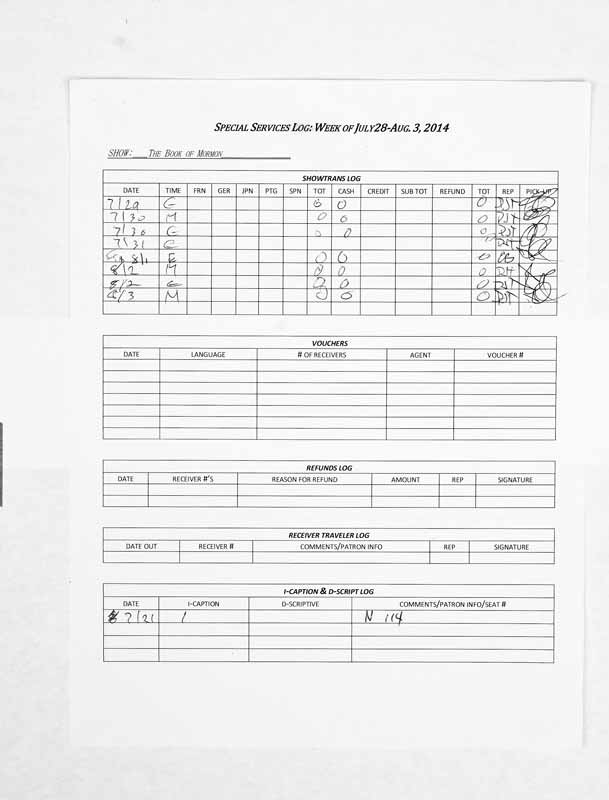 SPECIAL SERVICES LOG: WEEK OF JULY28-AUG. 3, 2014
SHOW: THE BOOK OF MORMON
SHOWTRANS LOG
DATE TIME FRN GER JPN PTG SPN TOT CASH CREDIT SUB TOT REFUND TOT REP PICK-UP
7/29 E 0 0 0 DST
7/30 M 0 0 0 DST
7/30 E 0 0 0 DST
7/31 E
8/1 E 0 0 0
8/2 M 0 0 0
8/2 E 0 0 0 DST
8/3 M 0 0 0 DST
VOUCHERS
DATE LANGUAGE # OF RECEIVERS AGENT VOUCHER #
REFUNDS LOG
DATE RECEIVER #'S REASON FOR REFUND AMOUNT REP SIGNATURE
RECEIVER TRAVELER LOG
DATE OUT RECEIVER # COMMENTS/PATRON INFO REP SIGNATURE
I-CAPTION & D-SCRIPT LOG
DATE I-CAPTION D-SCRIPTIVE COMMENTS/PATRON INFO/SEAT #
7/31 1 N 114